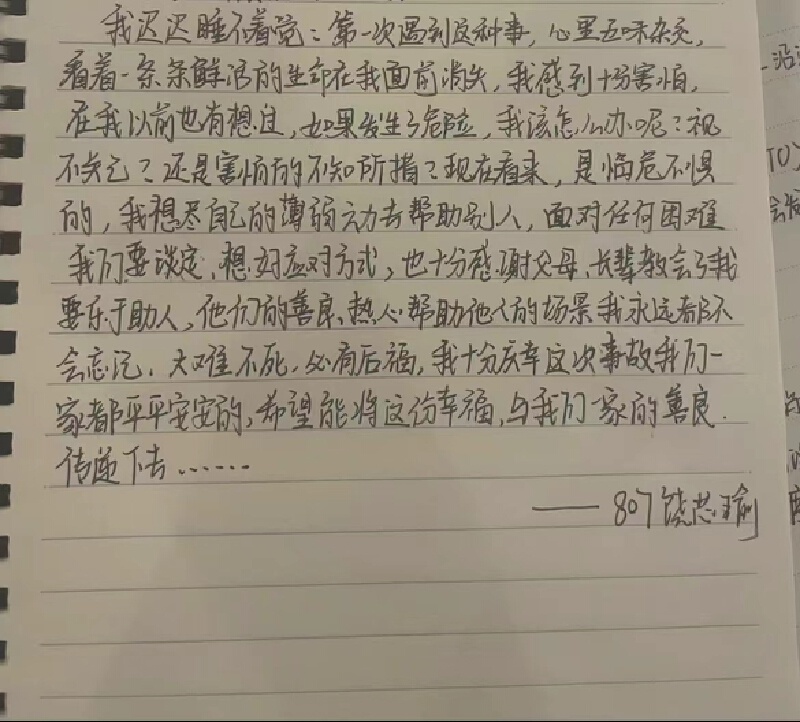 我迟迟睡不着觉：第一次遇到这种事，心里五味杂交，
看着一条条鲜活的生命在我面前消失，我感到十分害怕，
在我以前也有想过，如果发生了危险，我该怎么办呢？视
不关己？还是害怕的不知所措？现在看来，是临危不惧
的，我想尽自己的薄弱之力去帮助别人，面对任何困难
我们要谈定、想好应对方式，也十分感谢父母、长辈教会了我
要乐于助人，他们的善良、热心帮助他人的场景我永远都不
会忘记，大难不死，必有后福，我十分庆幸这次事故我们一
家都平平安安的，希望能将这份幸福，与我们家的善良
传递下去……
—— 807 饶